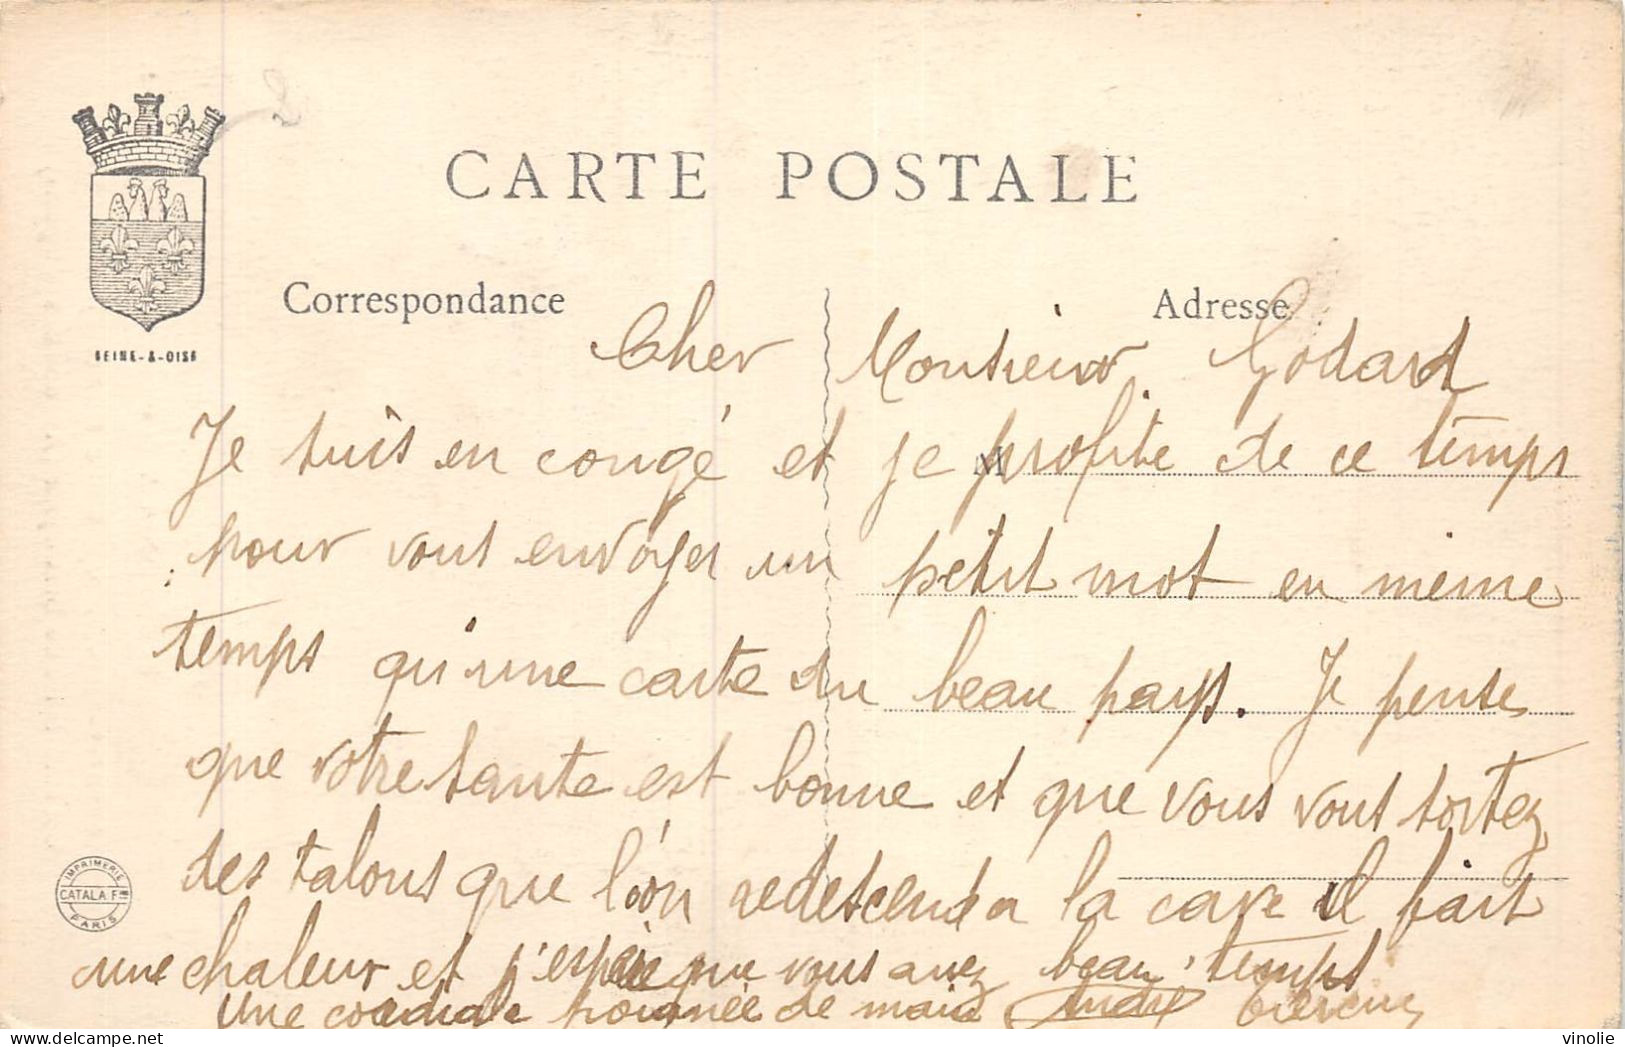 CARTE POSTALE
Correspondance
Adresse
SEINE-&-OISE
M
Cher Monsieur Godard
Je suis en congé et je profite de ce temps
pour vous envoyer un petit mot en même
temps qu'une carte du beau pays. Je pense
que votre santé est bonne et que vous vous sortez
des talous que l'on redescend a la cave il fait
une chaleur et j'espère que vous avez beau temps
Une cordiale poignée de main André
IMPRIMERIE
CATALA F RES
PARIS
vinolie